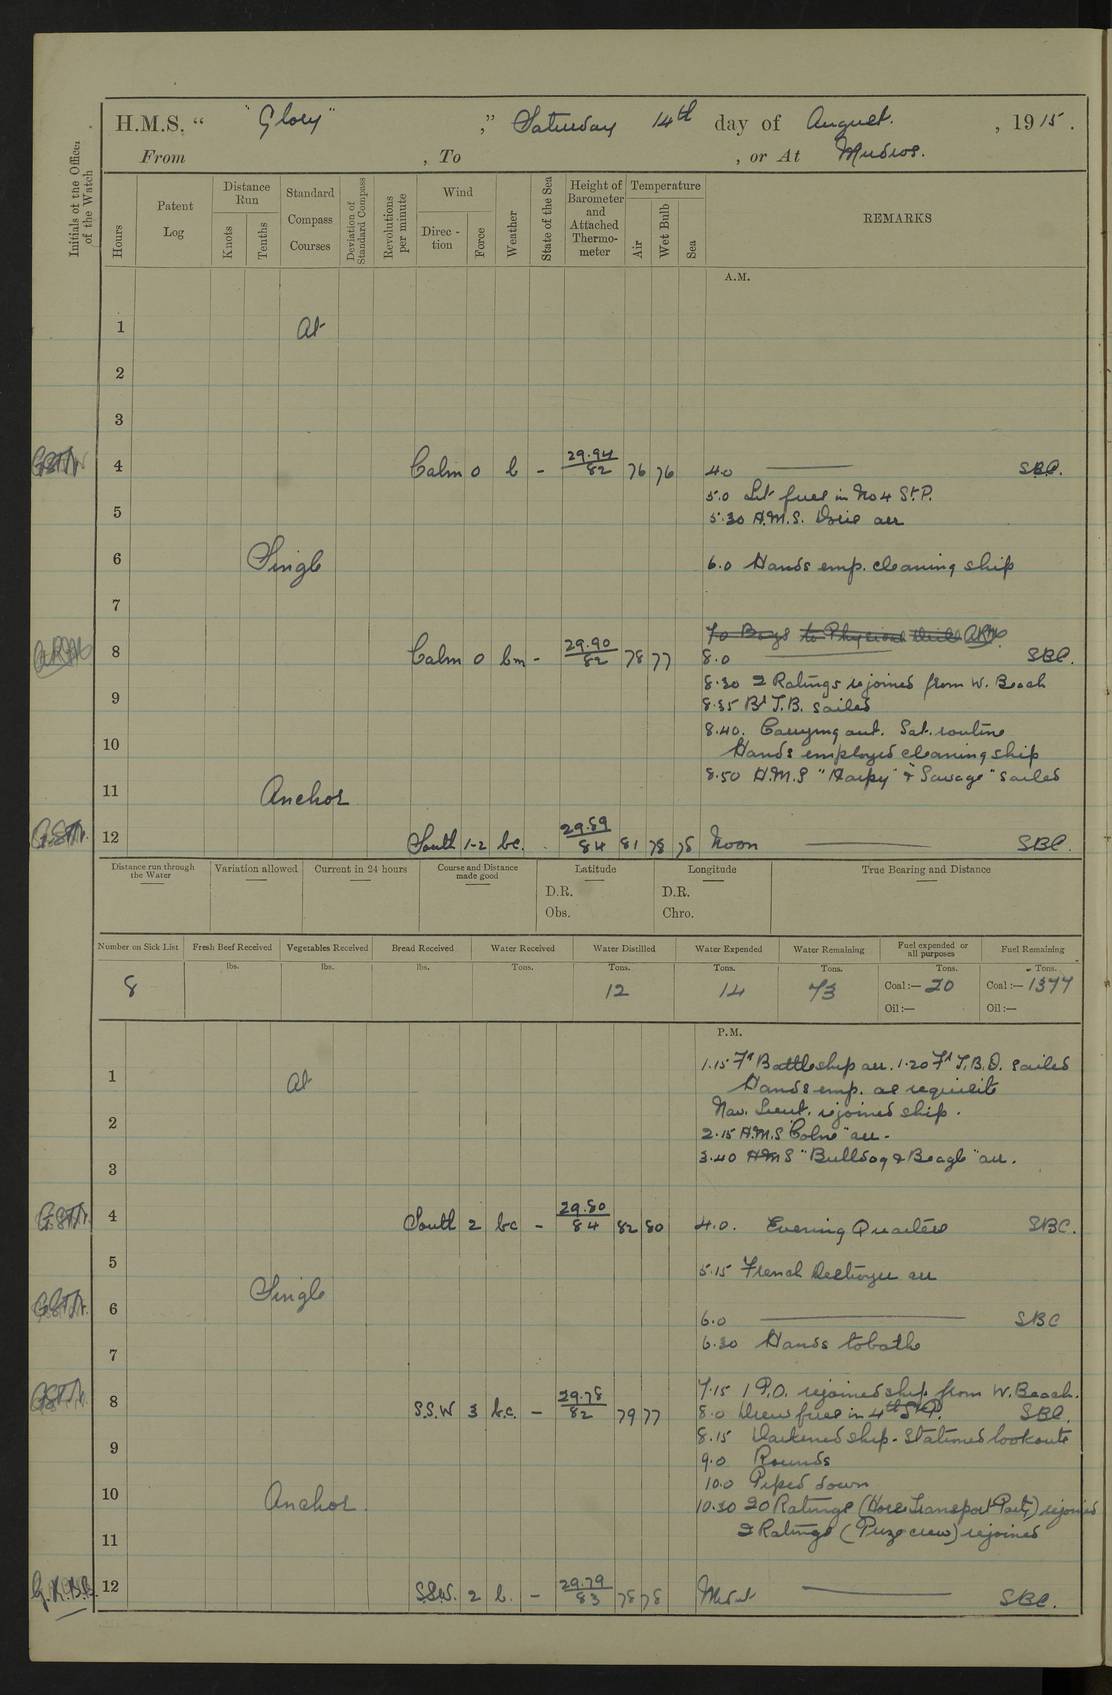 H.M.S. “ "Glory" ,” Saturday 14th day of August. , 1915.
From , To , or At Mudros.
Initials of the Officer of the Watch
Hours
Patent Log
Distance Run
Knots
Tenths
Standard Compass Courses
Deviation of Standard Compass
Revolutions per minute
Wind
Direc-tion
Force
Weather
State of the Sea
Height of Barometer and Attached Thermo-meter
Temperature
Air
Wet Bulb
Sea
REMARKS
A.M.
1 At
2
3
4 Calm 0 b - 29.94 82 76 76 4.0 SBC.
5.0 Lit fires in No 4 St. P.
5 5.30 H.M.S. Doris arr
6 Single 6.0 Hands emp. cleaning ship
7
7.0 Boys to Physical drill
8 Calm 0 bm - 29.90 82 78 77 8.0 SBC.
8.30 2 Ratings rejoined from W. Beach
9 8.35 Br T.B. sailed
8.40. Carrying out. Sat. routine
10 Hands employed cleaning ship
8.50 H.M.S "Harpy" & "Savage" sailed
11 Anchor
12 South 1-2 bc. 29.89 84 81 78 78 Noon SBC.
Distance run through the Water
Variation allowed
Current in 24 hours
Course and Distance made good
Latitude
D.R.
Obs.
Longitude
D.R.
Chro.
True Bearing and Distance
Number on Sick List
Fresh Beef Received
Vegetables Received
Bread Received
Water Received
Water Distilled
Water Expended
Water Remaining
Fuel expended or all purposes
Fuel Remaining
lbs. lbs. lbs. Tons. Tons. Tons. Tons. Tons. Tons.
8 12 14 73 Coal:— 20 Coal:— 1377
Oil:— Oil:—
P.M.
1.15 Fr Battleship arr. 1.20 Fr T.B.D. sailed
1 At Hands emp. as requisite
Nav. Lieut. rejoined ship.
2 2.15 H.M.S "Colne" arr.
3 3.40 HMS "Bulldog & Beagle" arr.
4 South 2 bc - 29.80 84 82 80 4.0. Evening Quarters SBC.
5 5.15 French Destroyer arr
6 Single 6.0 SBC
6.30 Hands to bathe
7
7.15 1 P.O. rejoined ship from W. Beach.
8 S.S.W 3 b.c. - 29.78 82 79 77 8.0 Drew fires in 4th St P. SBC.
8.15 Darkened ship. Stationed lookouts
9 9.0 Rounds
10.0 Piped down
10 Anchor. 10.30 20 Ratings (Horse Transport Party) rejoined
11 2 Ratings (Prize crew) rejoined
12 S.S.W. 2 b. - 29.79 83 78 78 Mid.t SBC.